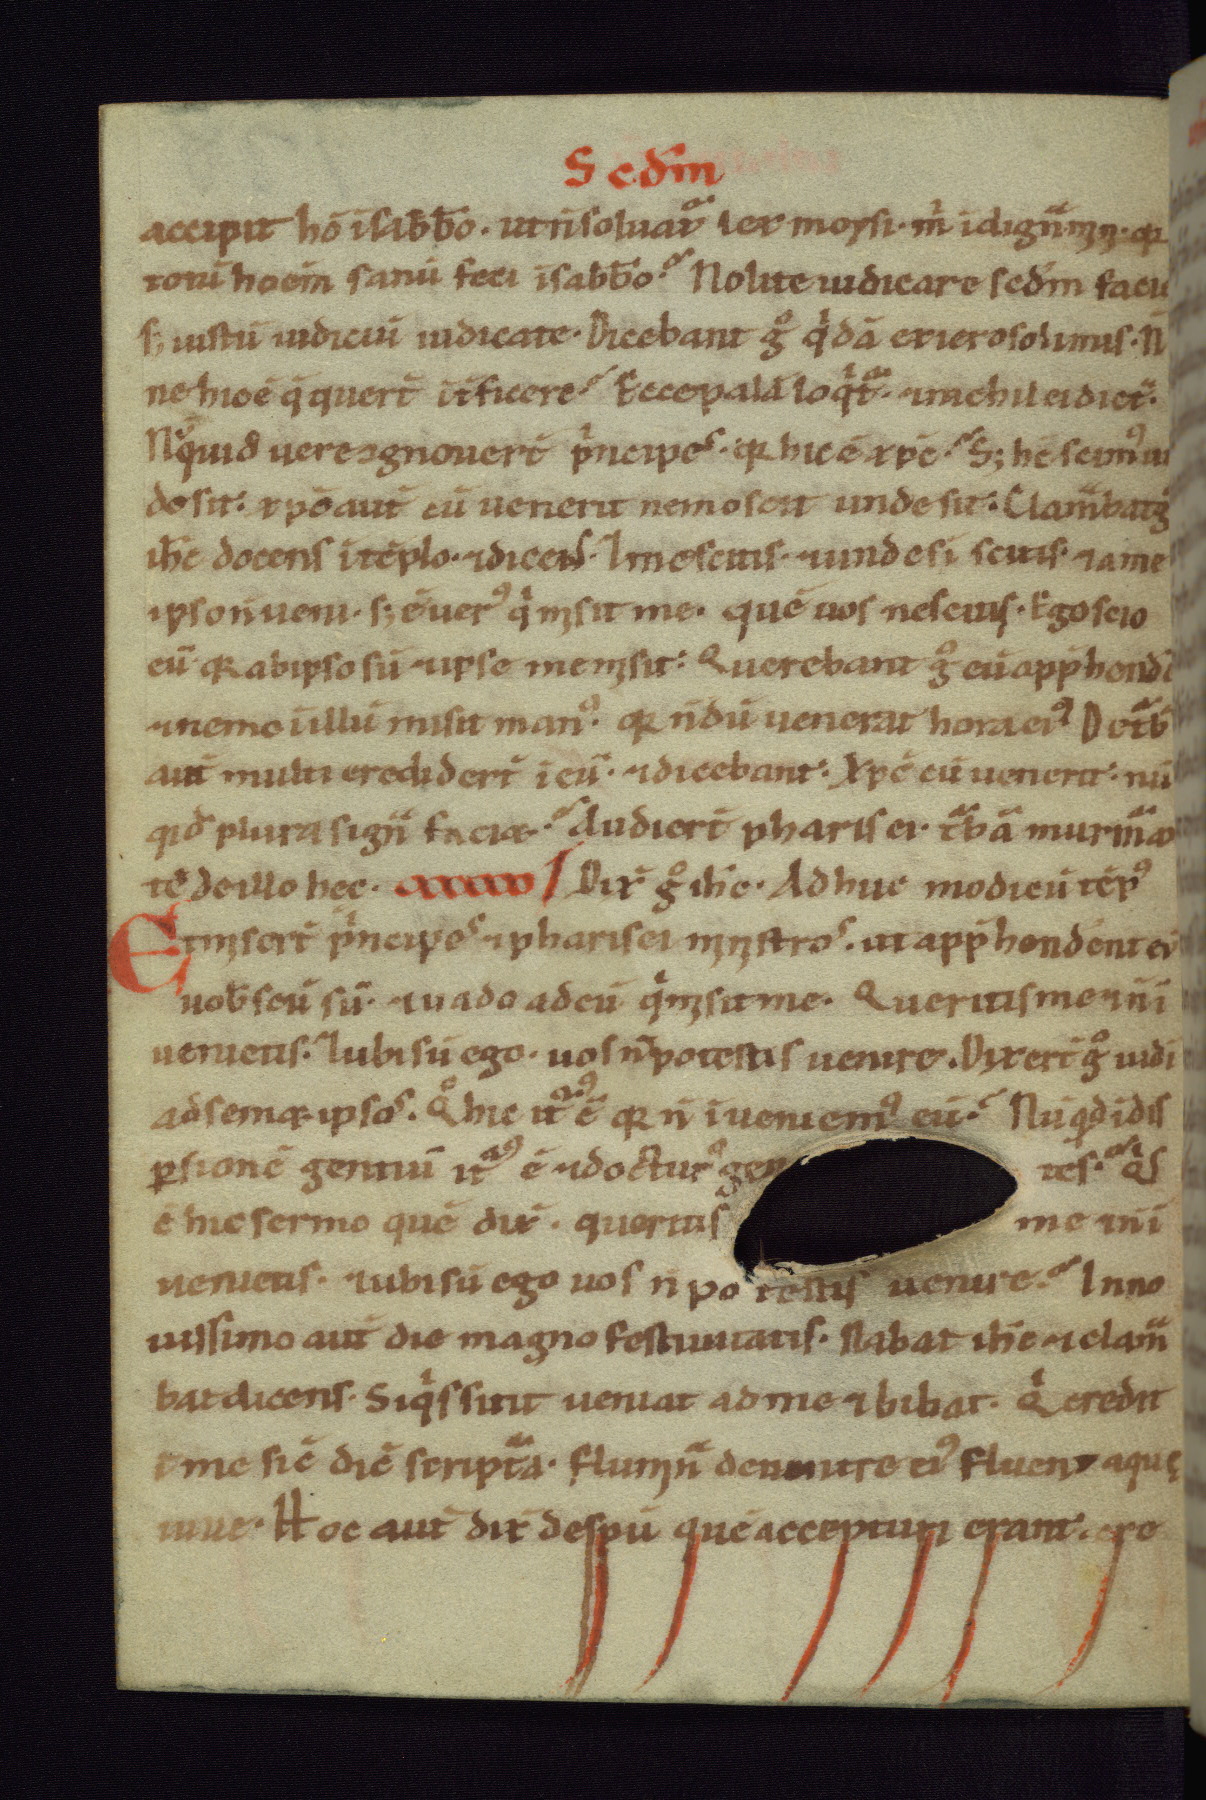 Scdm̄
accipit hō ı̄ sabb̄o. ut n̄ soluat̄ lex moysi. m̄ ı̄dignam̄. qr
totū hoēm sanū feci ı̄ sabb̄o. Nolite iudicare scdm̄ faciē
s; iustū iudiciū iudicate. Dicebant gͦ qͥdā ex ierosolimis. N
ne hic ē q̄ quert̄ ı̄t̄ficere. Ecce palā loqͥt̄. ⁊ nichil ei dict̄.
Nūquid vere cognovert̄ pͥncipes. qr hic ē xpē. S; hc̄ scim⁹ un
de sit. xpē aut̄ cū venerit nemo scit unde sit. Clamabat gͦ
ih̄c docens ı̄ tēplo. ⁊ dicens. 7 me scitis. ⁊ unde si scitis. ⁊ a me
ipso n̄ veni. s; ē ver⁹ qͥ misit me. quē vos nescitis. Ego scio
eū. qr ab ipso sū ⁊ ipse me misit. Querebant gͦ eū app̄hend̄e
⁊ nemo ı̄ illū misit man⁹. qr n̄dū venerat hora ei⁹ De t̄b
aut̄ multi crediderт̄ ı̄ eū. ⁊ dicebant. Xpē cū venerit. nū
qid plura sign̄ faciæ. Audiert̄ pharisei. t̄bā murmā
tē de illo hec. Dix̄ gͦ ih̄c. Adhuc modicū tēp⁹
Et misert̄ pͥncipes ⁊ pharisei ministros. ut app̄hendent eū
vobscū sū. ⁊ vado ad eū qͥ misit me. Queritis me ⁊ n̄ ı̄
venietis. 7 ubi sū ego. vos n̄ potestis venire. Dixert̄ gͦ iudi
ad semæ ipsos. Qͦ hic it̄⁹ ē qr n̄ ı̄veniem⁹ eū. Nūqͥd ı̄ dis
p̄sionē gentiū it̄⁹ ē ⁊ doctur⁹ gen tes. Qͥs
ē hic sermo quē dix̄. queritis me ⁊ n̄ ı̄
venietis. ⁊ ubi sū ego vos n̄ potestis venire. In no
vissimo aut̄ die magno festivitatis. stabat ih̄c ⁊ clam̄
bat dicens. Si qͥs sitit veniat ad me ⁊ bibat. Qͥ credit
ı̄ me sic̄ dic̄ script̄a. flumin̄ de ventre ei⁹ fluent aquę
vive. Hoc aut̄ dix̄ de spū quē accepturi erant. cre